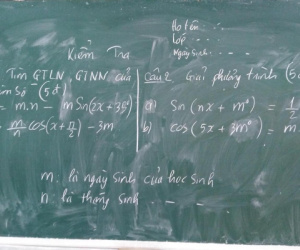 Họ tên: . . . .
Lớp . . .
Ngày sinh: . . .
Kiểm Tra
Tìm GTLN, GTNN của
Hàm số (5đ)
= m.n - m Sin(2x + 35°)
= m/n cos(x + π/2) - 3m
Câu 2 Giải phương trình (5
a) Sin(nx + m°) = 1/2
b) cos(5x + 3m°) = m
m: là ngày sinh của học sinh
n là tháng sinh . . - - -